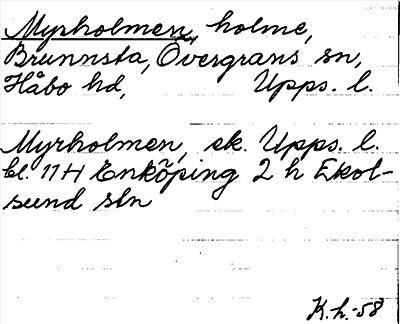 Myrholmen, holme,
Brunnsta, Övergrans sn,
Håbo hd, Upps. l.
Myrholmen, ek. Upps. l.
bl. 11 H Enköping 2 h Ekol-
sund stn
K.h.-58